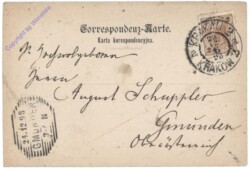 Correspondenz-Karte.
Karta korespondencyjna.
Sr. Hochwohlgeboren
Herrn
August Schuppler
Gmunden
Oberösterreich
KRAKÓW
GMUNDEN
24.12.98